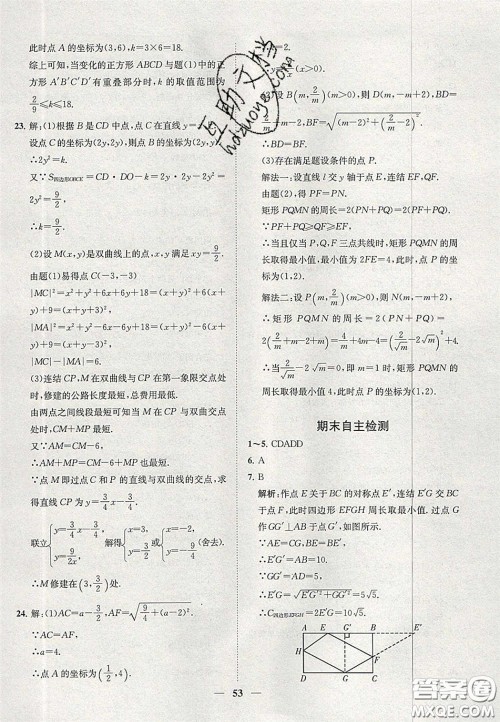 此时点 A 的坐标为(3,6),k=3×6=18.
综上可知,当变化的正方形 ABCD 与题(1)中的正方形 A′B′C′D′ 有重叠部分时,k 的取值范围为
2/9≤k≤18.
23. 解:(1)根据 B 是 CD 中点,点 C 在直线 y=
的坐标为(2y,2y),则点 B 的坐标为(2y,y)
∴2y²=k.
又∵S四边形OBCE=CD·DO-k=2y·2y-2y²=
2y²=9/2,
∴k=9/2.
(2)设 M(x,y)是双曲线上的点,满足 xy=9/2.
由题(1)易得点 C(-3,-3)
|MC|²=x²+y²+6x+6y+18=(x+y)²+6(x+y)+9=(x+y+3)².
|MA|²=x²+y²-6x-6y+18=(x+y)²-6(x+y)+9=(x+y-3)².
|MC|-|MA|=6.
(3)连结 CP,M 在双曲线与 CP 在第一象限交点处时,修建的公路长度最短,总费用最低.
由两点之间线段最短可知 M 在 CP 与双曲线交点处时,CM+MP 最短.
又∵CM-AM=6.
∴AM+PM=CM-6+PM=CP-6.
∴点 M 即过点 C 和 P 的直线与双曲线的交点,可求得直线 CP 为 y=3/4x-3/4.
联立{y=3/4x-3/4, y=9/2x} 解得{x=3, y=3/2}或{ (舍去).
∴M 修建在(3,3/2)处.
24. 解:(1)AC=a-3/2,AF=√(9/4+(a-2)²).
∵AC=AF,∴a=4.
∴点 A 的坐标为(1/2,4).
=2.
(x>0).
设 B(m,2/m)(m>0),则 D(m,-m+2),
-2,BF=√(m²+(2/m-2)²)=
∴BD=BF.
(3)存在满足题设条件的点 P.
解法一:设直线 l 交 y 轴于点 E,连结 EF,QF.
由题(2),得 PF=PN.
矩形 PQMN 的周长=2(PN+PQ)=2(PF+PQ).
∵PF+PQ≥QF≥EF.
∴当且仅当点 P、Q、F 三点共线时,矩形 PQMN 的周长取得最小值,最小值为 2FE=4,此时,点 P 的坐标为(1,2).
解法二:设 P(m,2/m)(m>0),则 N(m,-m+2).
∴矩形 PQMN 的周长=2(PN+PQ)=
2(2/m+m-2+m)=4/m+4m-4=4(1/√m-√m)²+4
∴当 1/√m=√m,即 m=1 时,矩形 PQMN 的周长取得最小值 4,此时点 P 的坐标为(1,2).
期末自主检测
1~5. CDADD
6. A
7. B
解析:作点 E 关于 BC 的对称点 E′,连结 E′G 交 BC 于点 F,此时四边形 EFGH 周长取最小值,过点 G 作 GG′⊥AB 于点 G′,如图所示.
∵AE=CG,BE=BE′.
∴E′G′=AB=10.
∵GG′=AD=5.
∴E′G=√(E′G′²+GG′²)=5√5.
∴C四边形EFGH=2E′G=10√5.
A E G′ B E′
H F
D G C
53
互助文档
hdzuoye.com
答案圈
MXQE.COM